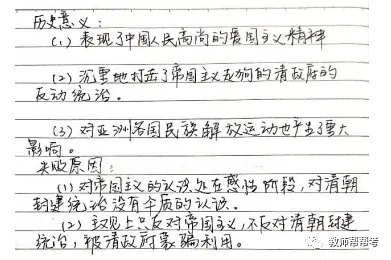 历史意义:
(1) 表现了中国人民高尚的爱国主义精神
(2) 沉重地打击了帝国主义走狗的清政府的
反动统治。
(3) 对亚洲各国民族解放运动也产生了重大
影响。
失败原因:
(1) 对帝国主义的认识处在感性阶段,对清朝
封建统治没有本质的认识.
(2) 主观上只反对帝国主义,不反对清朝封建
统治,被清政府蒙骗利用。
教师帮帮考